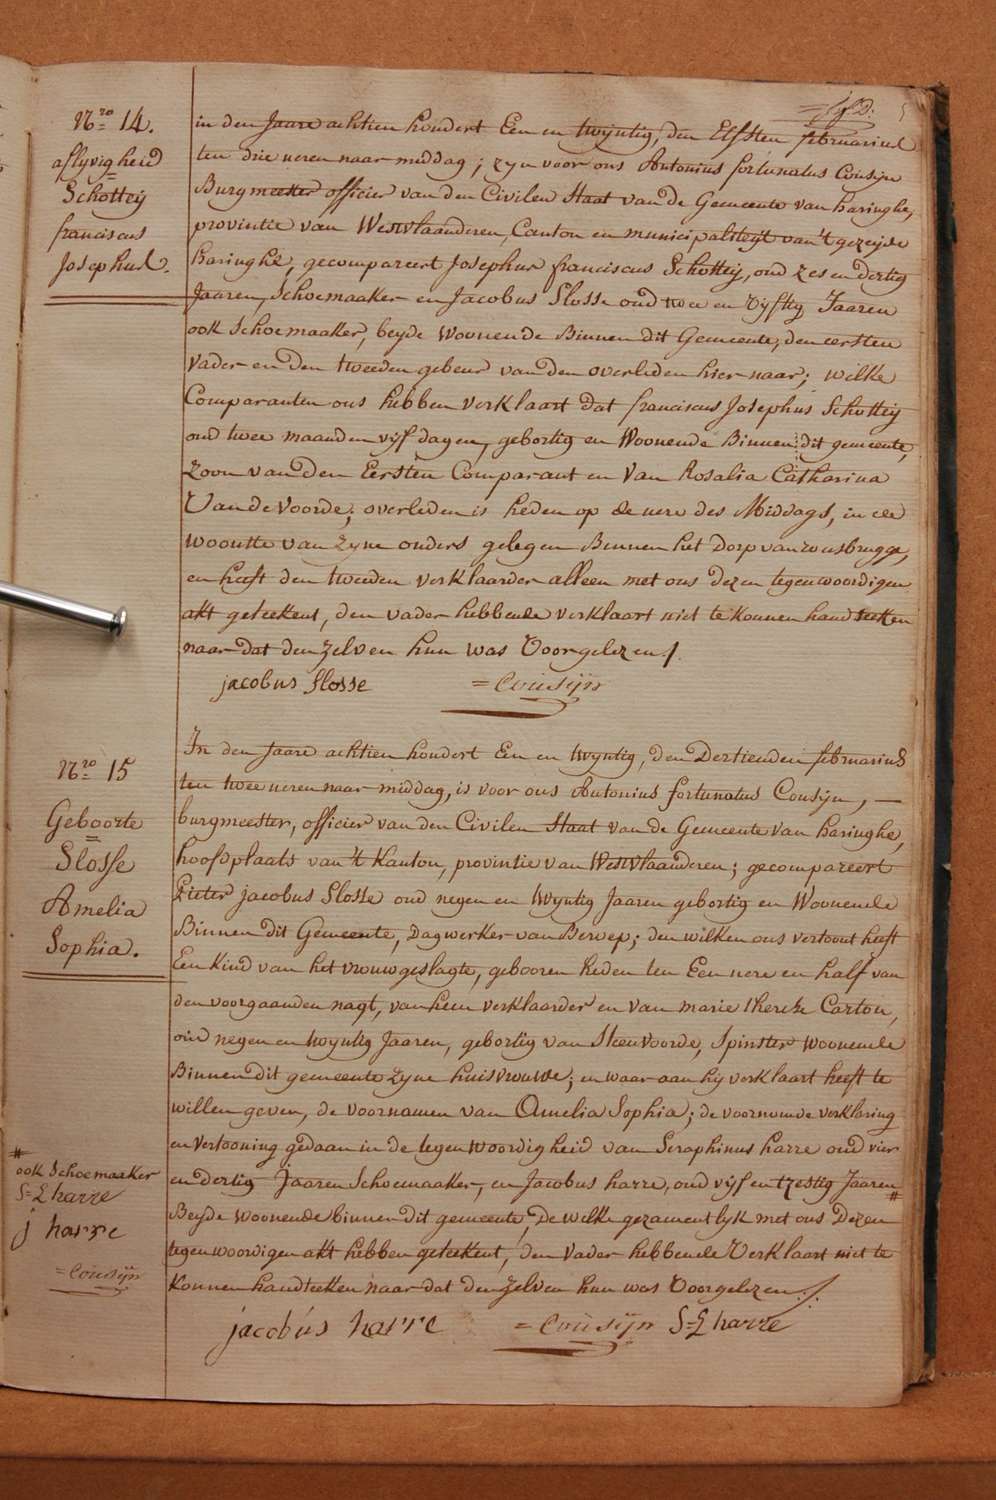 Nro 14.
aflyvigheid
Schottey
franciscus
Josephus.
in den Jaare achtien hondert Een en twyntig, den Elfsten februarius
ten drie ueren naar middag; zyn voor ons Antonius fortunatus Cousyn
Burgmeester officier van den Civilen Staat van de Gemeente van haringhe,
provintie van Westvlaanderen, Canton en municipalityt van 't gezeyde
haringhe, gecompareert Josephus franciscus Schottey, oud zes en dertig
Jaaren, Schoemaaker en Jacobus Slosse oud twee en vyftig Jaaren
ook Schoemaaker, beyde Woonende Binnen dit Gemeente, den eersten
Vader en den tweeden gebeur van den overleden hier naar; wilke
Comparanten ons hebben verklaart dat franciscus Josephus Schottey
oud twee maanden vyf dagen, gebortig en Woonende Binnen dit gemeente,
Zoon van den Eersten Comparant en Van Rosalia Catharina
Van de Voorde, overleden is heden op de uere des Middags, in de
woonste van Zyne ouders gelegen Binnen het Dorp van rousbrugge,
en heeft den tweeden verklaarder alleen met ons dezen tegenwoordigen
akt geteekent, den vader hebbende verklaart niet te konnen handteeken
naar dat den zelven hun was Voorgelezen /.
jacobus slosse = Cousijn
Nro 15
Geboorte
Slosse
Amelia
Sophia.
In den Jaare achtien hondert Een en twyntig, den Dertienden februarius
ten twee ueren naar middag, is voor ons Antonius fortunatus Cousyn, —
burgmeester, officier van den Civilen Staat van de Gemeente van haringhe,
hoofdplaats van 't Kanton, provintie van Westvlaanderen; gecompareert
Pieter jacobus Slosse oud negen en twyntig Jaaren gebortig en Woonende
Binnen dit Gemeente, Dagwerker van Beroep; den wilken ons vertoont heeft
Een Kind van het vrouwgeslagte, gebooren heden ten Een uere en half van
den voorgaanden nagt, van hem verklaarder en van marie therese Carton,
oud negen en twyntig Jaaren, gebortig van Steenvoorde, Spinster Woonende
Binnen dit gemeente zyne huisvrouwe; en waar aan hij verklaart heeft te
willen geven, de voornamen van Amelia Sophia; de voornoemde verklaring
en vertooning gedaan in de tegenwoordigheid van Seraphinus harre oud vier
en dertig Jaaren Schoemaaker, en Jacobus harre, oud vijf en tzestig Jaaren #
Beyde woonende binnen dit gemeente, De wilke gezamentlyk met ons Dezen
tegenwoordigen akt hebben geteekent, den Vader hebbende Verklaart niet te
Konnen handteeken naar dat den Zelven hun was Voorgelezen /.
# ook Schoemaaker
S=L harre
j harre
= Cousijn
jacobus harre = Cousijn S=L harre